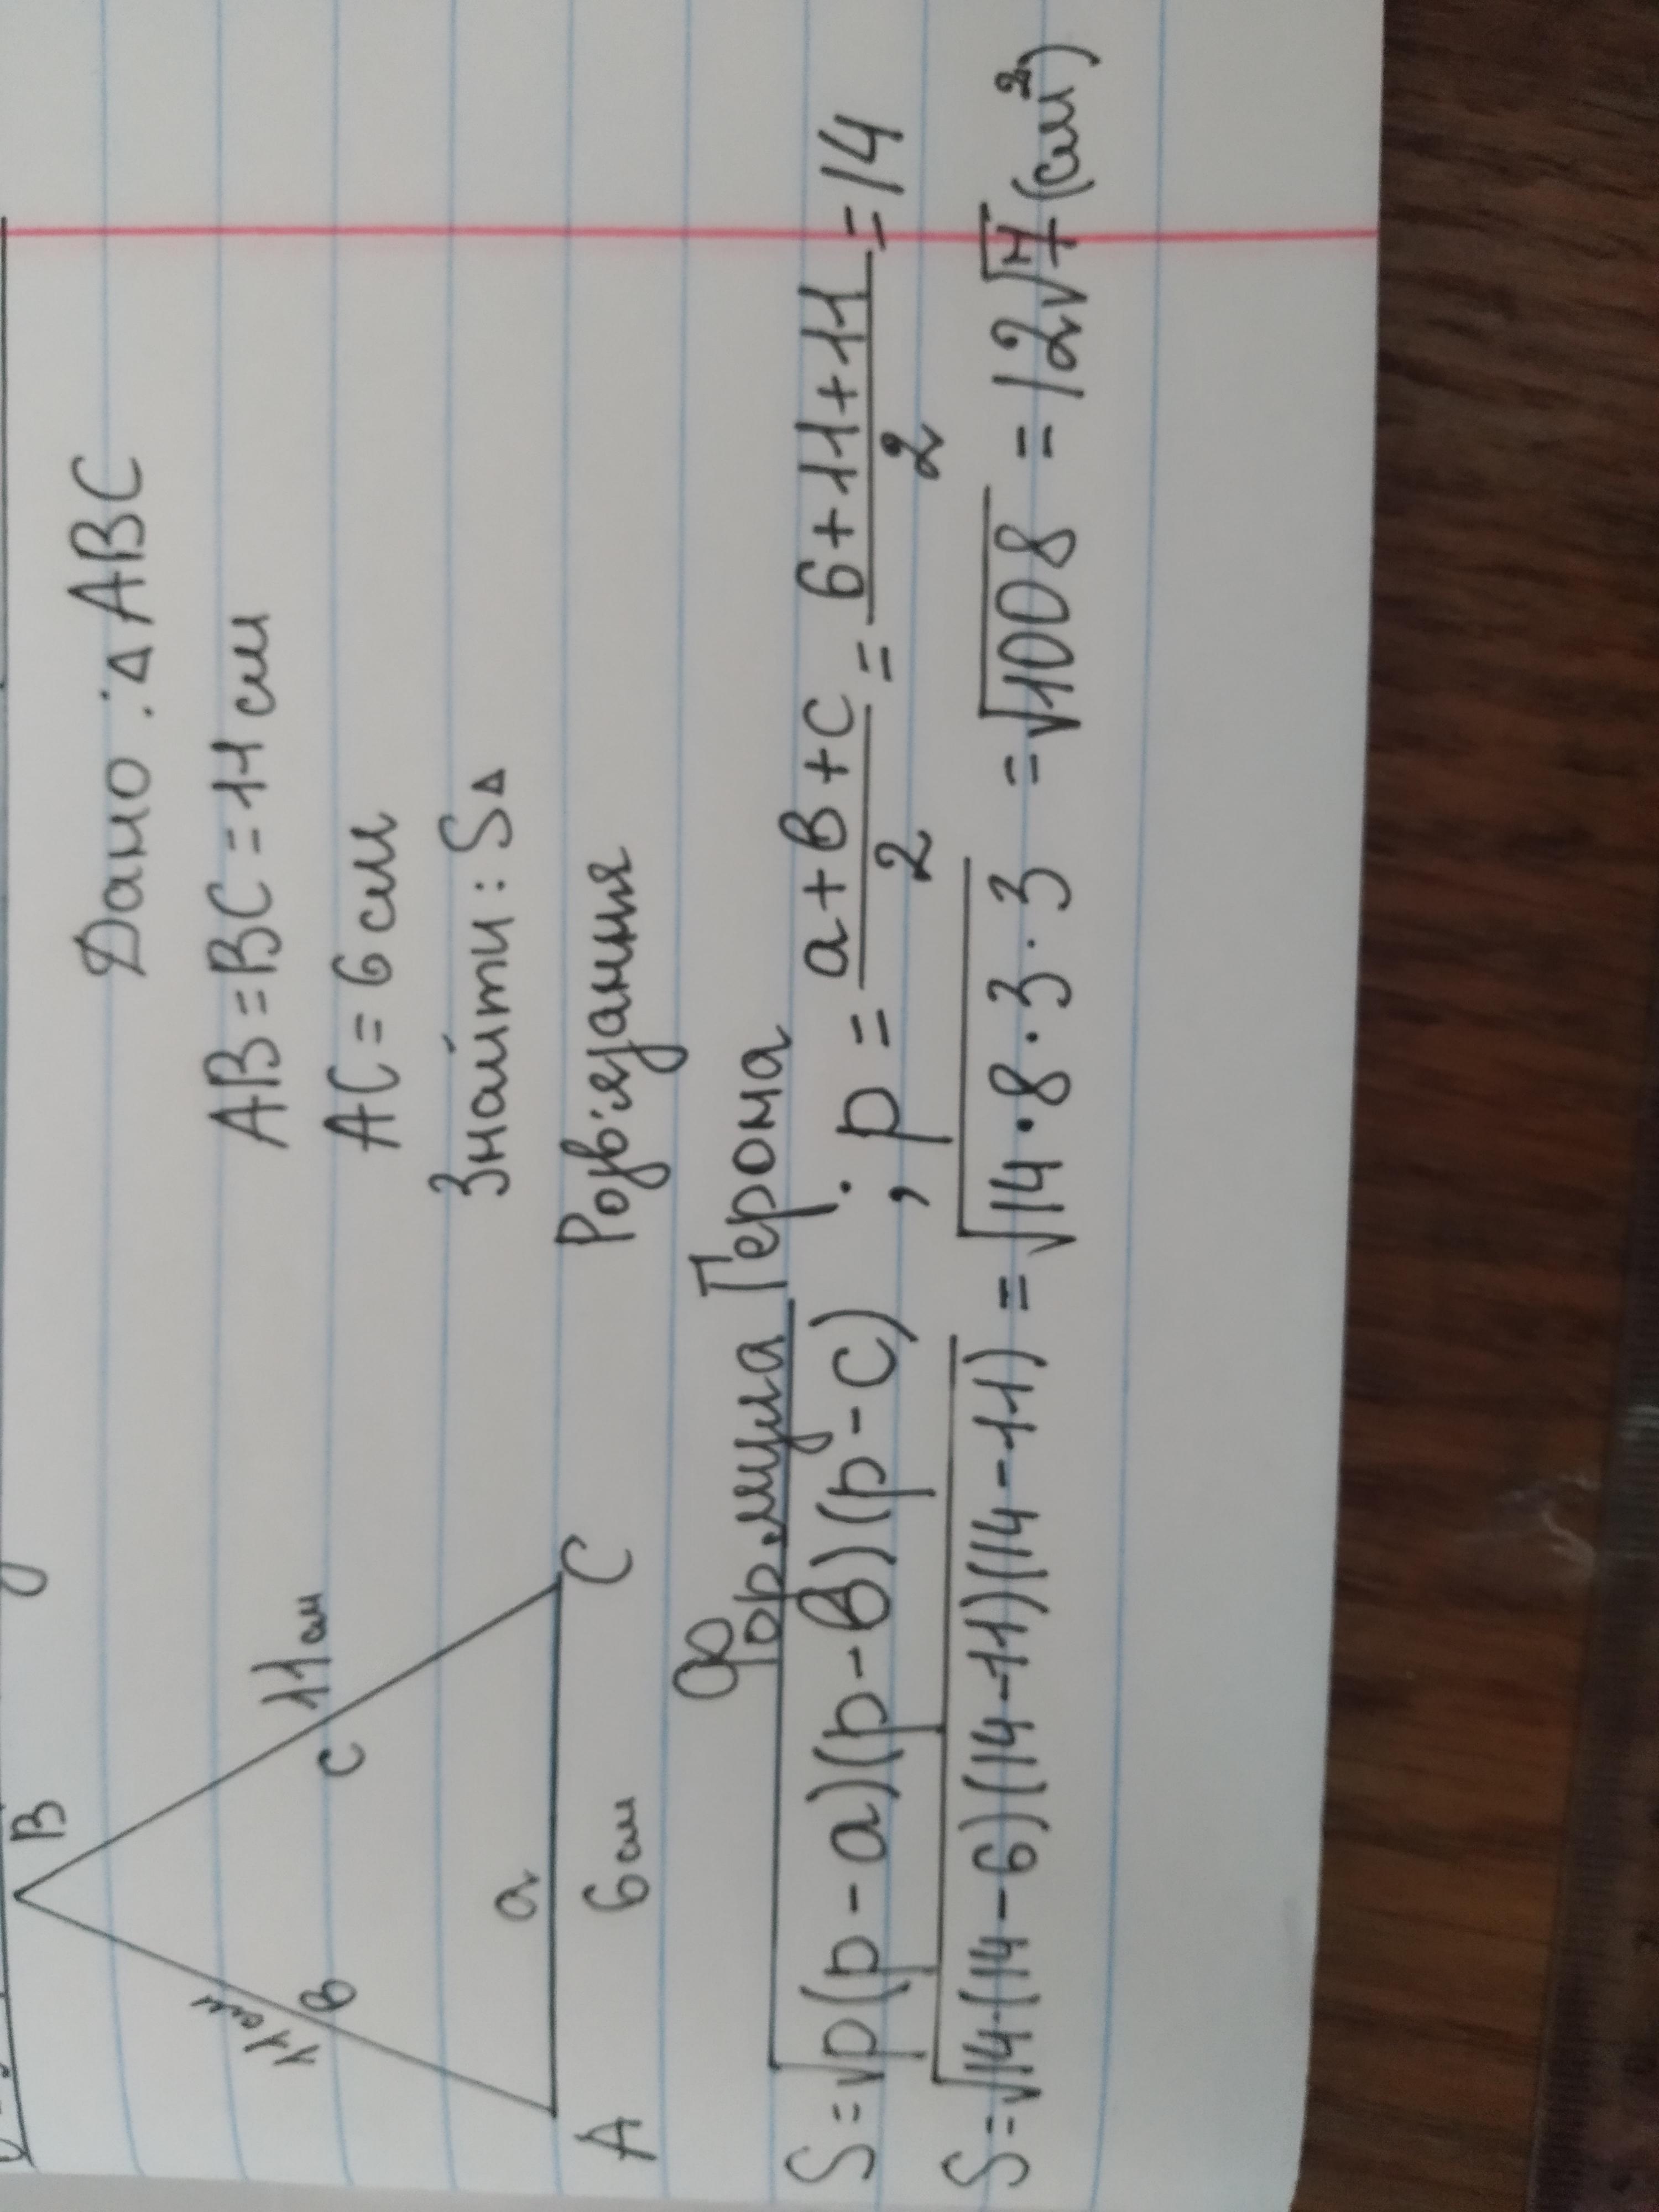 B
11см
11см
в
с
а
A
6см
C
Дано: ΔABC
AB=BC=11см
AC=6см
Знайти: SΔ
Розв'язання
Формула Герона
S=√p(p-a)(p-в)(p-c) ; p = a+в+c/2 = 6+11+11/2 = 14
S=√14·(14-6)(14-11)(14-11) = √14·8·3·3 = √1008 = 12√7 (см²)